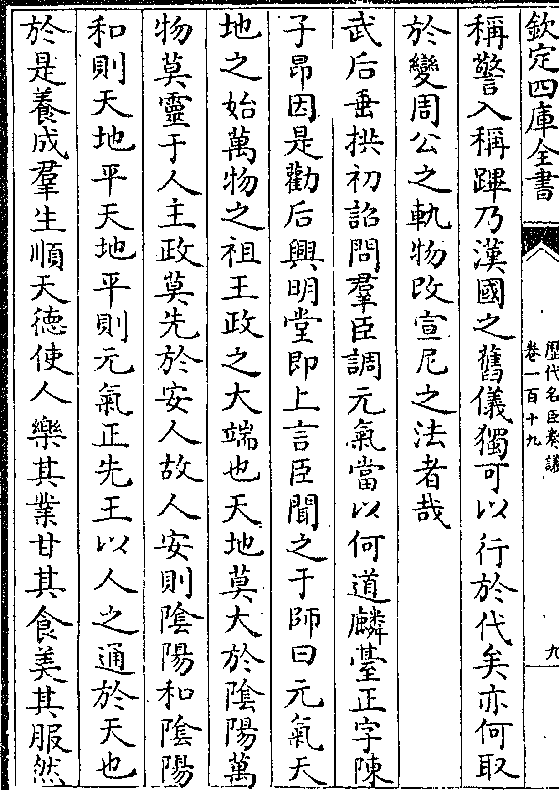 欽定四庫全書
歷代名臣奏議
卷一百十九
九
稱警入稱蹕乃漢國之舊儀獨可以行於代矣亦何取
於變周公之軌物改宣尼之法者哉
武后垂拱初詔問羣臣調元氣當以何道麟臺正字陳
子昂因是勸后興明堂即上言臣聞之于師曰元氣天
地之始萬物之祖王政之大端也天地莫大於陰陽萬
物莫靈于人主政莫先於安人故人安則陰陽和陰陽
和則天地平天地平則元氣正先王以人之通於天也
於是養成羣生順天德使人樂其業甘其食美其服然